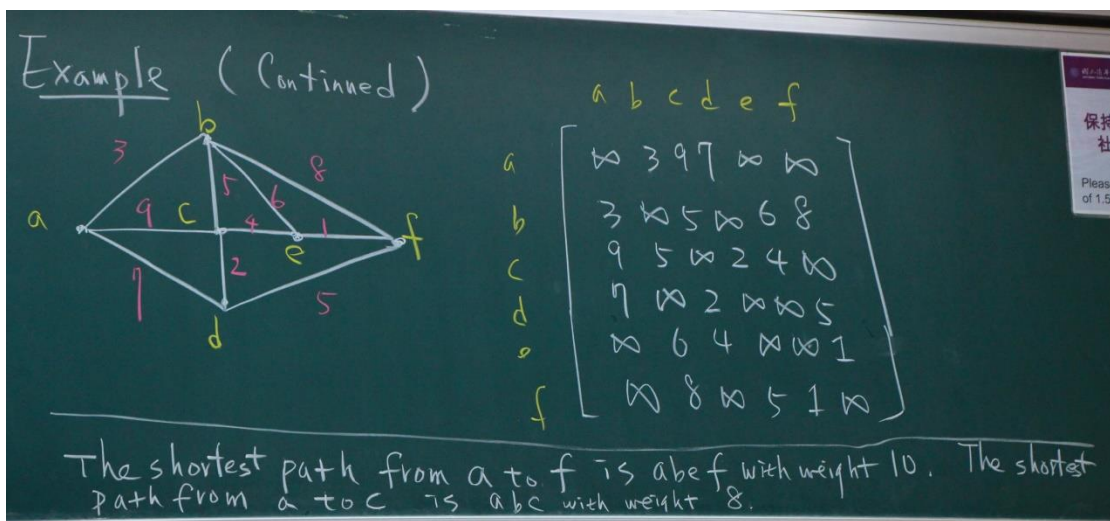 Example (Continued)
b
3
8
5
6
a
9
c
4
e
1
f
7
2
5
d
a b c d e f
a ∞ 3 9 7 ∞ ∞
b 3 ∞ 5 ∞ 6 8
c 9 5 ∞ 2 4 ∞
d 7 ∞ 2 ∞ ∞ 5
e ∞ 6 4 ∞ ∞ 1
f ∞ 8 ∞ 5 1 ∞
The shortest path from a to f is abef with weight 10. The shortest
path from a to c is abc with weight 8.
保持
社
Pleas
of 1.5